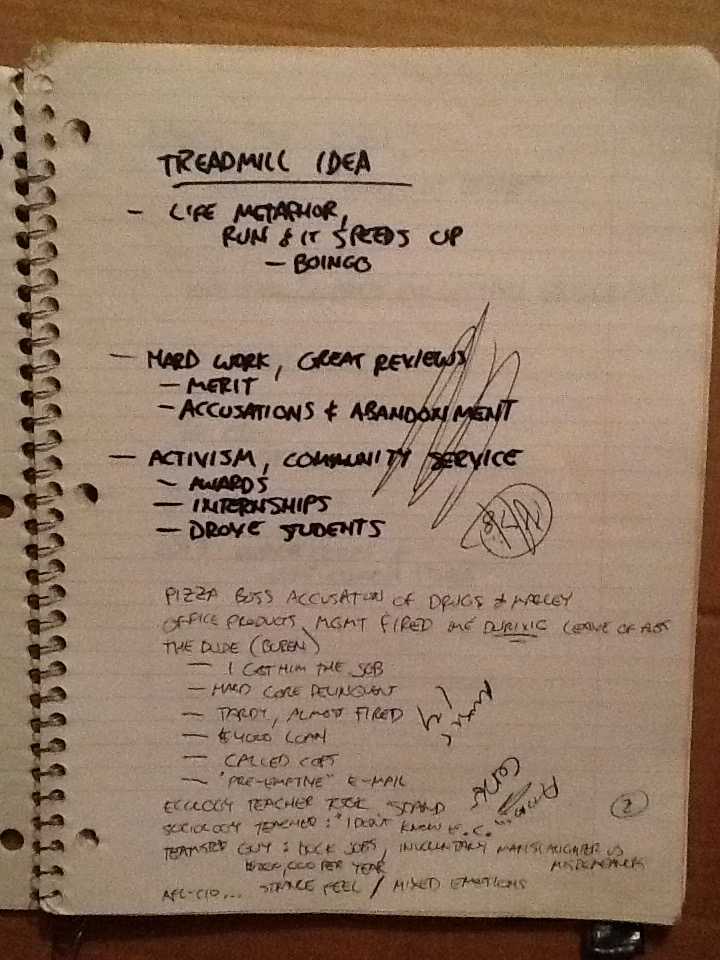 TREADMILL IDEA
- LIFE METAPHOR,
RUN & IT SPEEDS UP
- BOINGO
- HARD WORK, GREAT REVIEWS
- MERIT
- ACCUSATIONS & ABANDONMENT
- ACTIVISM, COMMUNITY SERVICE
- AWARDS
- INTERNSHIPS
- DROVE STUDENTS
PIZZA BOSS ACCUSATION OF DRUGS & MARLEY
OFFICE PRODUCTS MGMT FIRED ME DURING LEAVE OF ABS
THE DUDE
- I GOT HIM THE JOB
- HARD CORE DELINQUENT
- TARDY, ALMOST FIRED
- $4000 LOAN
- CALLED COPS
- "PRE-EMPTIVE" E-MAIL
ECOLOGY TEACHER TOOK STAND
SOCIOLOGY TEACHER: "I DON'T KNOW E.C."
TEAMSTER GUY: DOCK JOBS, INVOLUNTARY MANSLAUGHTER VS MISDEMEANORS
$200,000 PER YEAR
AFL-CIO... STRANGE FEEL / MIXED EMOTIONS
2